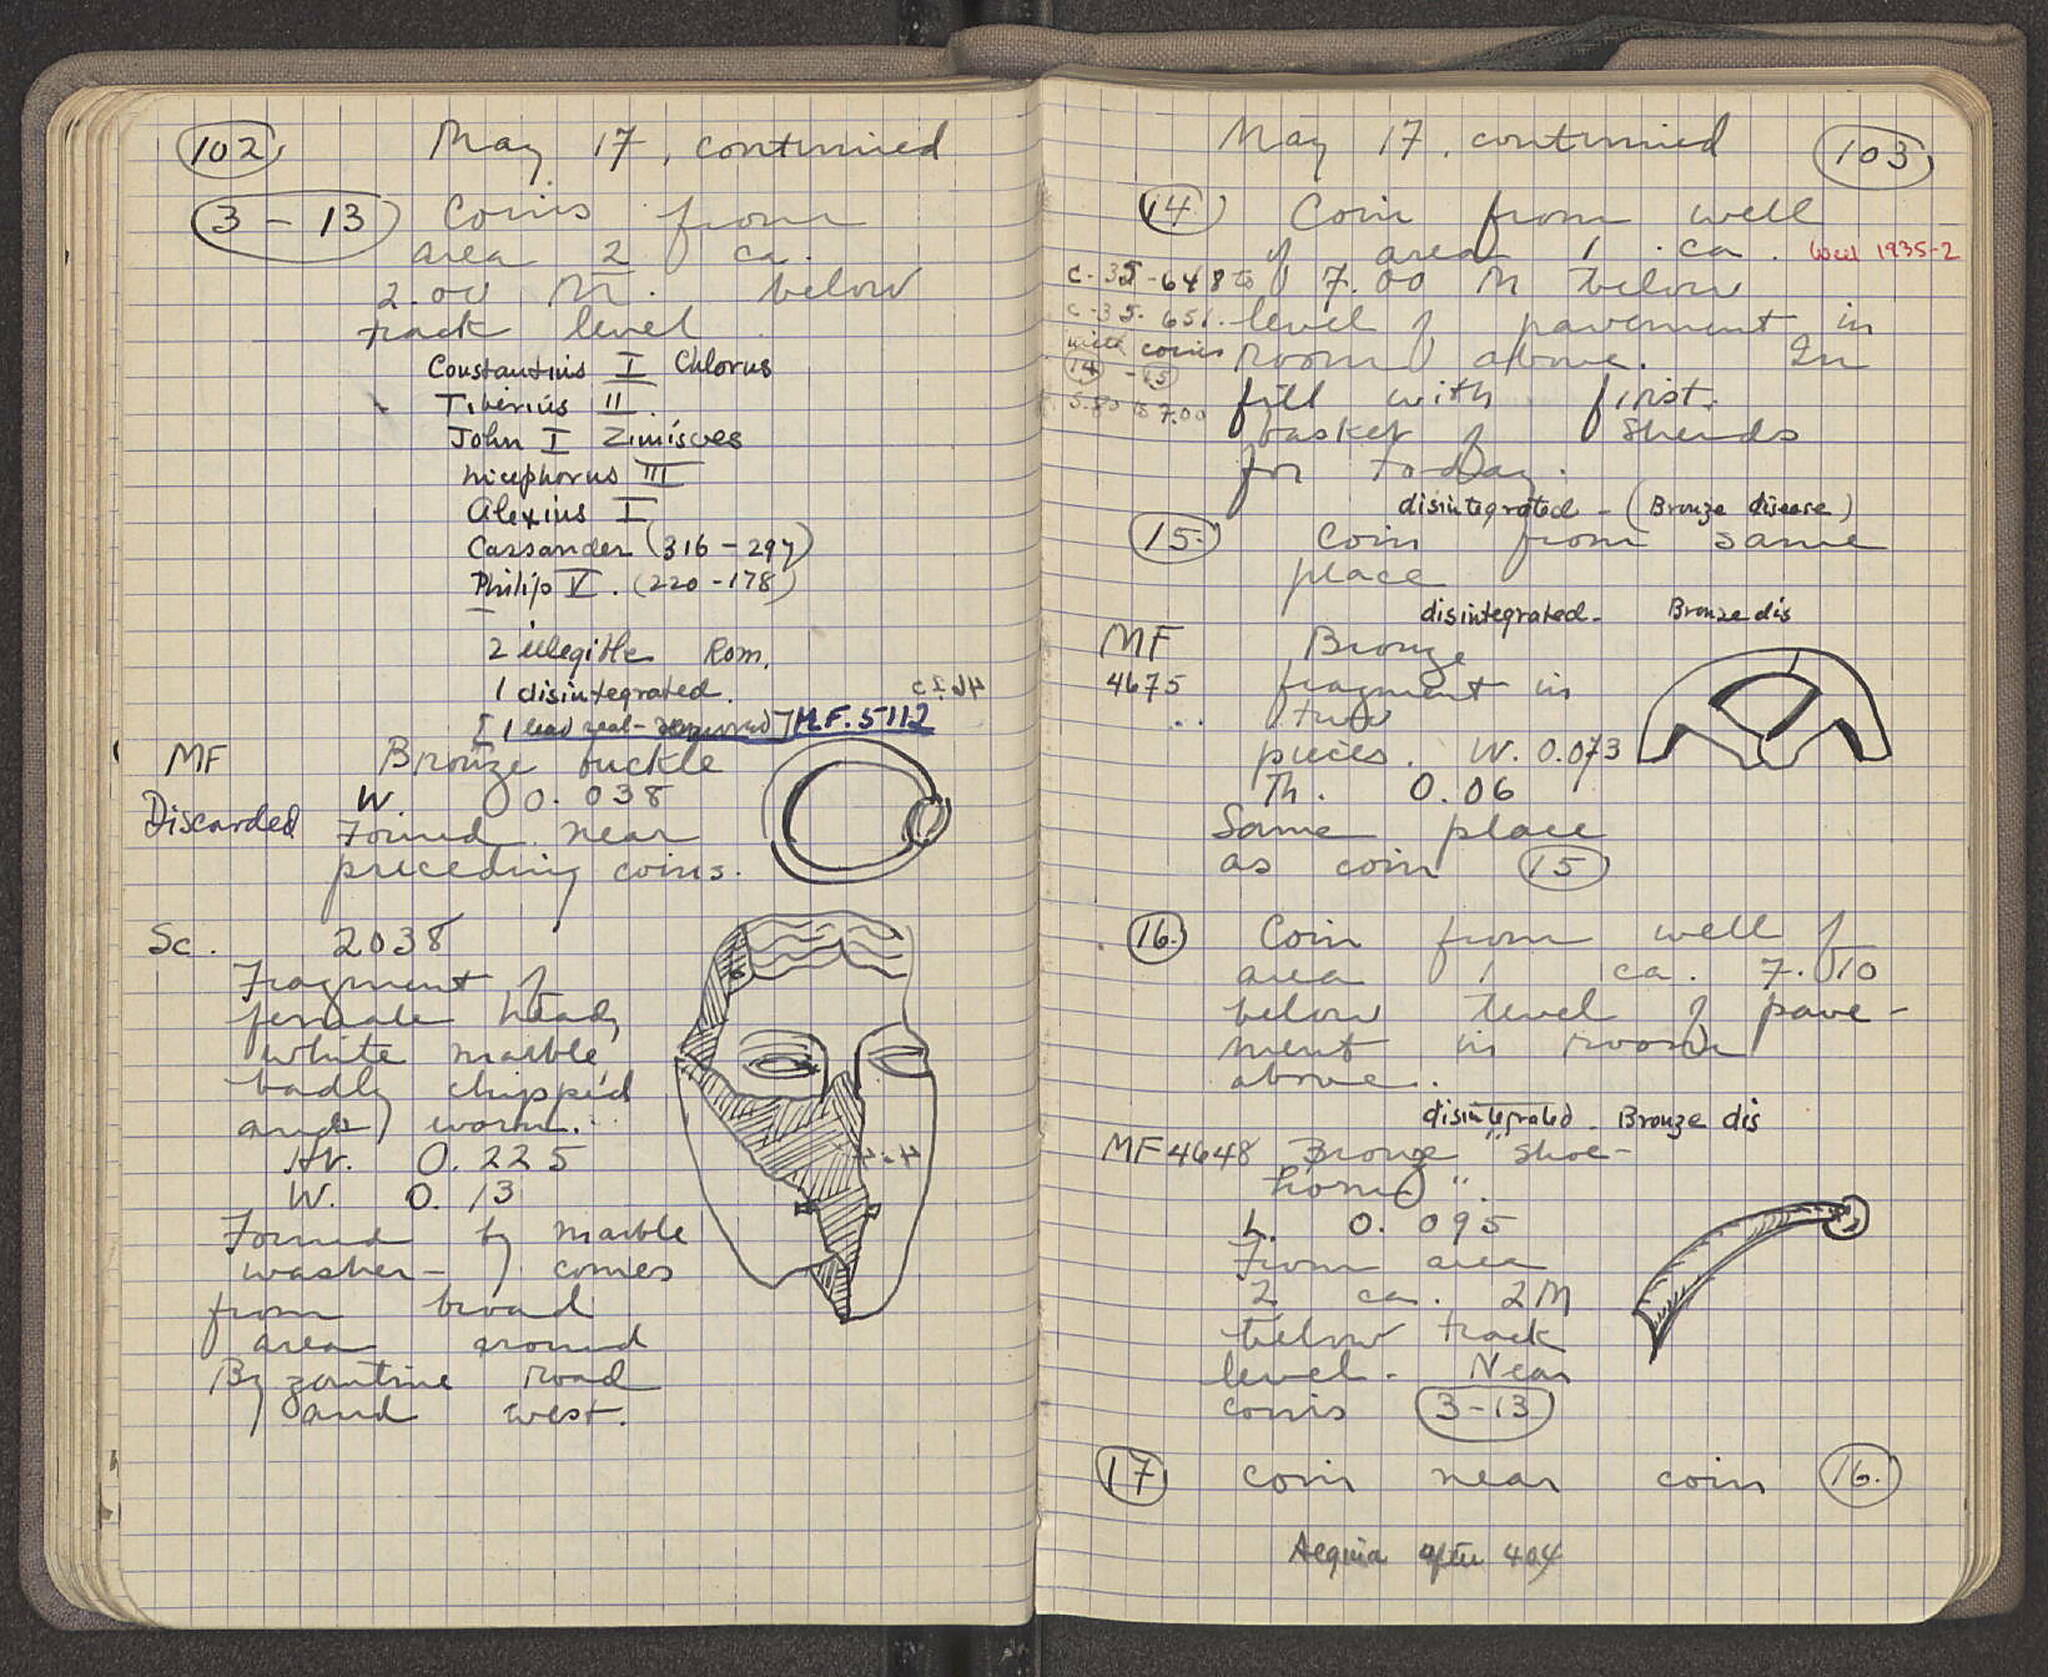 102
May 17, continued
3 - 13 Coins from
area 2 ca.
2.00 M. below
track level
Constantius I Chlorus
Tiberius II.
John I Zimisces
Nicephorus III
Alexius I
Cassander (316 - 297)
Philip V. (220 - 178)
2 illegible Rom.
1 disintegrated.
[1 lead seal - removed] M.F. 5112
MF Bronze buckle
W. 0.038
Discarded Found near
preceding coins.
Sc. 2038
Fragment of
female head,
white marble,
badly chipped
and worn.
Ht. 0.225
W. 0.13
Found by marble
washer - comes
from broad
area around
Byzantine road
and west.
May 17, continued
103
14. Coin from well
of area 1 ca. Well 1935-2
C-35-648 to 7.00 M below
C-35-651. level of pavement in
with coins room above. In
14 - 15
fill with first
5.80 to 7.00
basket of sherds
for today.
disintegrated - (Bronze disease)
15. Coin from same
place
disintegrated - Bronze dis
MF Bronze
4675 fragment in
two
pieces. W. 0.073
Th. 0.06
Same place
as coin 15
16. Coin from well of
area 1 ca. 7.10
below level of pave-
ment in room
above.
disintegrated. Bronze dis
MF 4648 Bronze "shoe-
horn".
L. 0.095
From area
2 ca. 2M
below track
level. Near
coins 3-13
17 coin near coin 16.
Aegina after 404